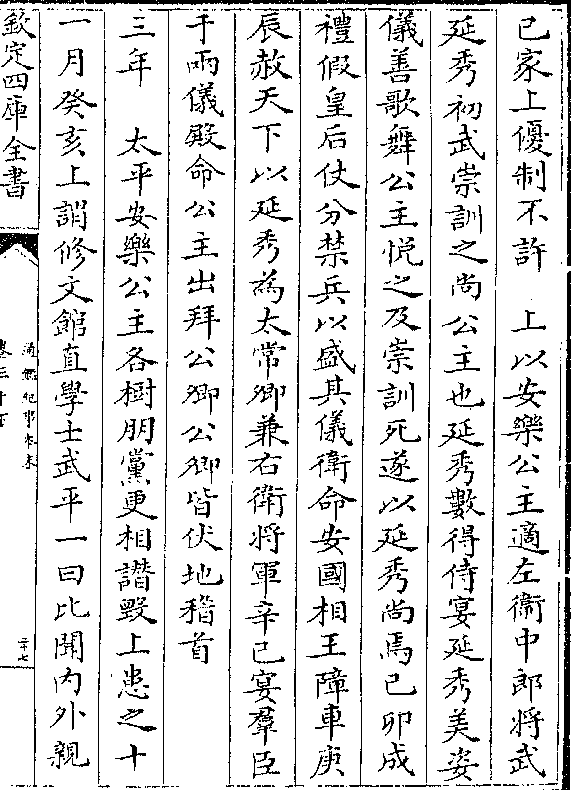 己家上優制不許　上以安樂公主適左衞中郎將武
延秀初武崇訓之尚公主也延秀數得侍宴延秀美姿
儀善歌舞公主悅之及崇訓死遂以延秀尚焉己卯成
禮假皇后仗分禁兵以盛其儀衞命安國相王障車庚
辰赦天下以延秀為太常卿兼右衞將軍辛己宴羣臣
于兩儀殿命公主出拜公卿公卿皆伏地稽首
三年　太平安樂公主各樹朋黨更相譖毀上患之十
一月癸亥上謂修文館直學士武平一曰比聞内外親
欽定四庫全書
通鑑紀事本末
二十七